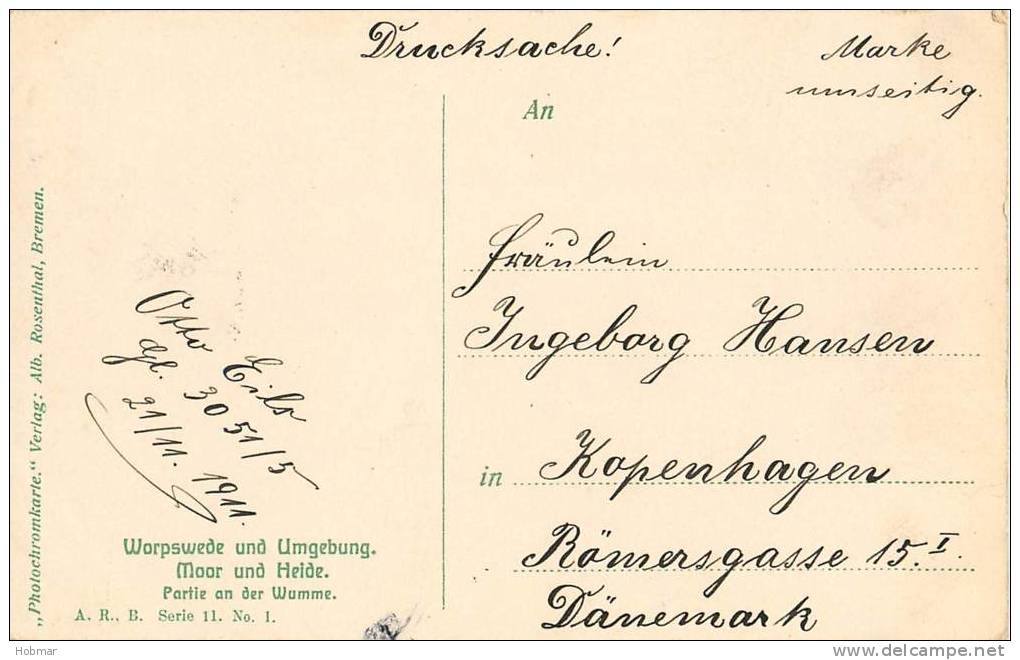 Drucksache!
Marke
umseitig.
An
Fräulein
Ingeborg Hansen
in Kopenhagen
Römersgasse 15.I
Dänemark
Otto Eils
3051/5
21/11. 1911.
Worpswede und Umgebung.
Moor und Heide.
Partie an der Wumme.
A. R., B. Serie 11. No. 1.
„Photochromkarte.“ Verlag: Alb. Rosenthal, Bremen.
Hobmar
delcampe.net